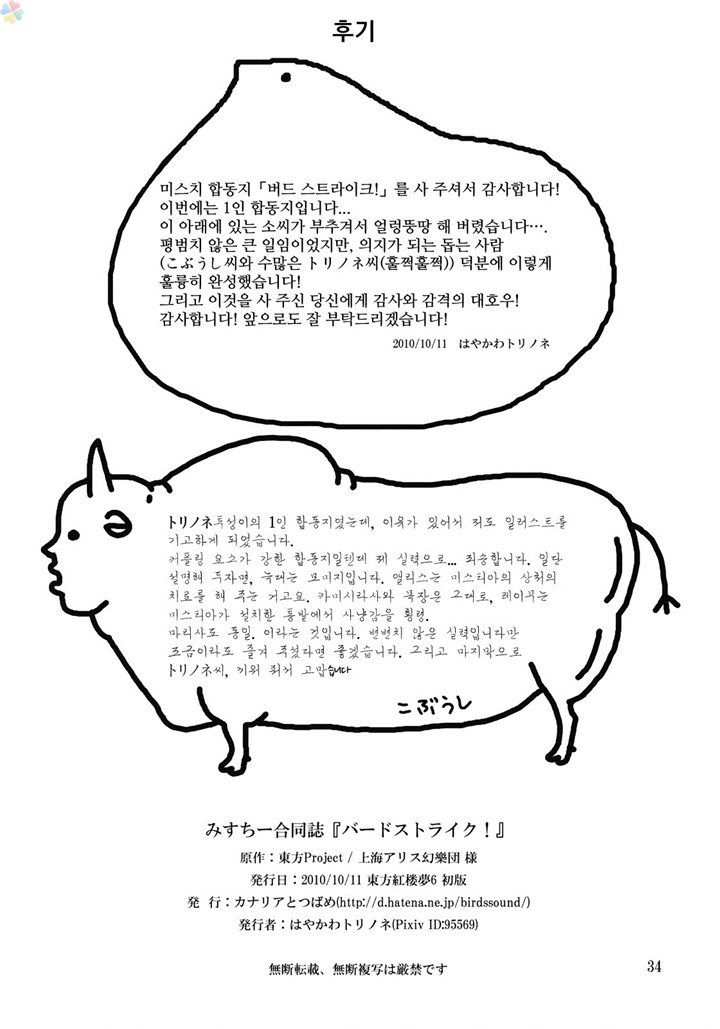 후기
미스치 합동지「버드 스트라이크!」를 사 주셔서 감사합니다!
이번에는 1인 합동지입니다...
이 아래에 있는 소씨가 부추겨서 얼렁뚱땅 해 버렸습니다….
평범치 않은 큰 일임이었지만, 의지가 되는 돕는 사람
(こぶうし씨와 수많은 トリノネ씨(훌쩍훌쩍)) 덕분에 이렇게
훌륭히 완성했습니다!
그리고 이것을 사 주신 당신에게 감사와 감격의 대호우!
감사합니다! 앞으로도 잘 부탁드리겠습니다!
2010/10/11 はやかわトリノネ
トリノネ투성이의 1인 합동지였는데, 이유가 있어서 저도 일러스트를
기고하게 되었습니다.
커플링 요소가 강한 합동지일텐데 제 실력으로... 죄송합니다. 일단
설명해 두자면, 늑대는 모미지입니다. 앨리스는 미스티아의 상처의
치료를 해 주는 거고요. 카미시라사와 목장은 그대로, 레이무는
미스티아가 설치한 통발에서 사냥감을 횡령.
마리사도 동일. 이라는 것입니다. 변변치 않은 실력입니다만
조금이라도 즐겨 주셨다면 좋겠습니다. 그리고 마지막으로
トリノネ씨, 끼워 줘서 고맙습니다
こぶうし
みすちー合同誌『バードストライク！』
原作：東方Project / 上海アリス幻樂団 様
発行日：2010/10/11 東方紅楼夢6 初版
発 行：カナリアとつばめ(http://d.hatena.ne.jp/birdssound/)
発行者：はやかわトリノネ(Pixiv ID:95569)
無断転載、無断複写は厳禁です
34